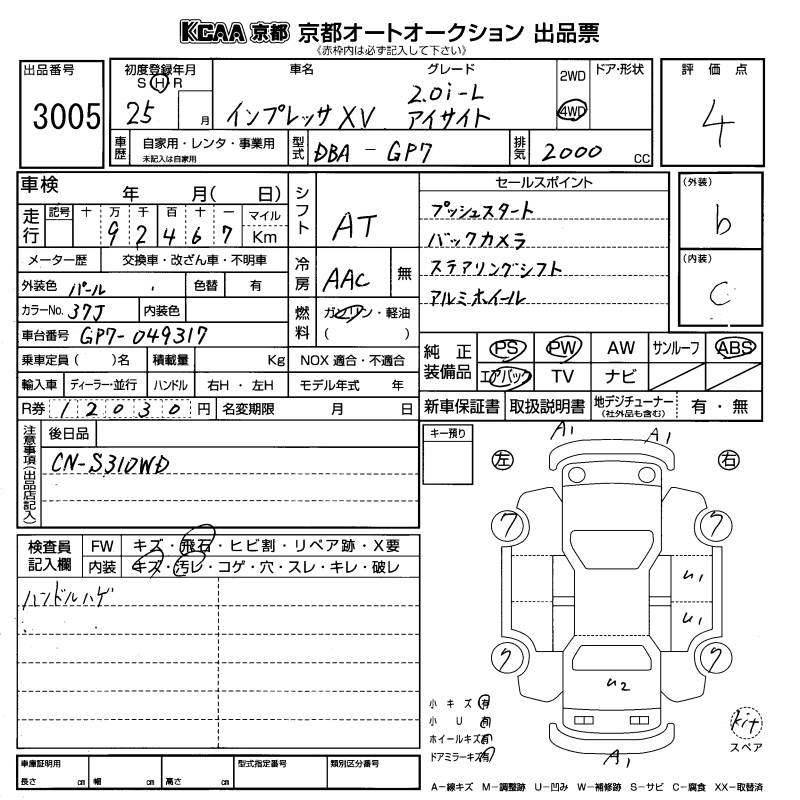 KCAA 京都 京都オートオークション 出品票
《赤枠内は必ず記入して下さい》
出品番号
3005
初度登録年月
S H R
25 月
車名
インプレッサ XV
グレード
2.0i-L
アイサイト
2WD
4WD
ドア・形状
評価点
4
車歴
自家用・レンタ・事業用
未記入は自家用
型式
DBA - GP7
排気
2000 cc
車検 年 月( 日)
走行
記号 十 万 千 百 十 一 マイル
9 2 4 6 7 Km
メーター歴 交換車・改ざん車・不明車
外装色 パール 色替 有
カラーNo. 37J 内装色
車台番号 GP7-049317
乗車定員 ( )名 積載量 Kg
輸入車 ディーラー・並行 ハンドル 右H ・ 左H
R券 12030 円 名変期限 月 日
シフト
AT
冷房
AAC 無
燃料
ガソリン・軽油
( )
NOX 適合・不適合
モデル年式 年
セールスポイント
プッシュスタート
バックカメラ
ステアリングシフト
アルミホイール
(外装)
b
(内装)
C
純正装備品
PS PW AW サンルーフ ABS
エアバック TV ナビ
新車保証書 取扱説明書 地デジチューナー(社外品も含む) 有・無
注意事項(出品店記入)
後日品
CN-S310WD
キー預り
検査員記入欄
FW キズ・飛石・ヒビ割・リペア跡・X要
内装 キズ・汚レ・コゲ・穴・スレ・キレ・破レ
ハンドルハゲ
A1 A1
左 右
ワ ワ
U1
U1
ワ ワ
U2
A1
小キズ 有
小U 有
ホイールキズ 有
ドアミラーキズ 有
kit
スペア
車庫証明用
長さ cm 幅 cm 高さ cm
型式指定番号
類別区分番号
A−線キズ M−調整跡 U−凹み W−補修跡 S−サビ C−腐食 XX−取替済